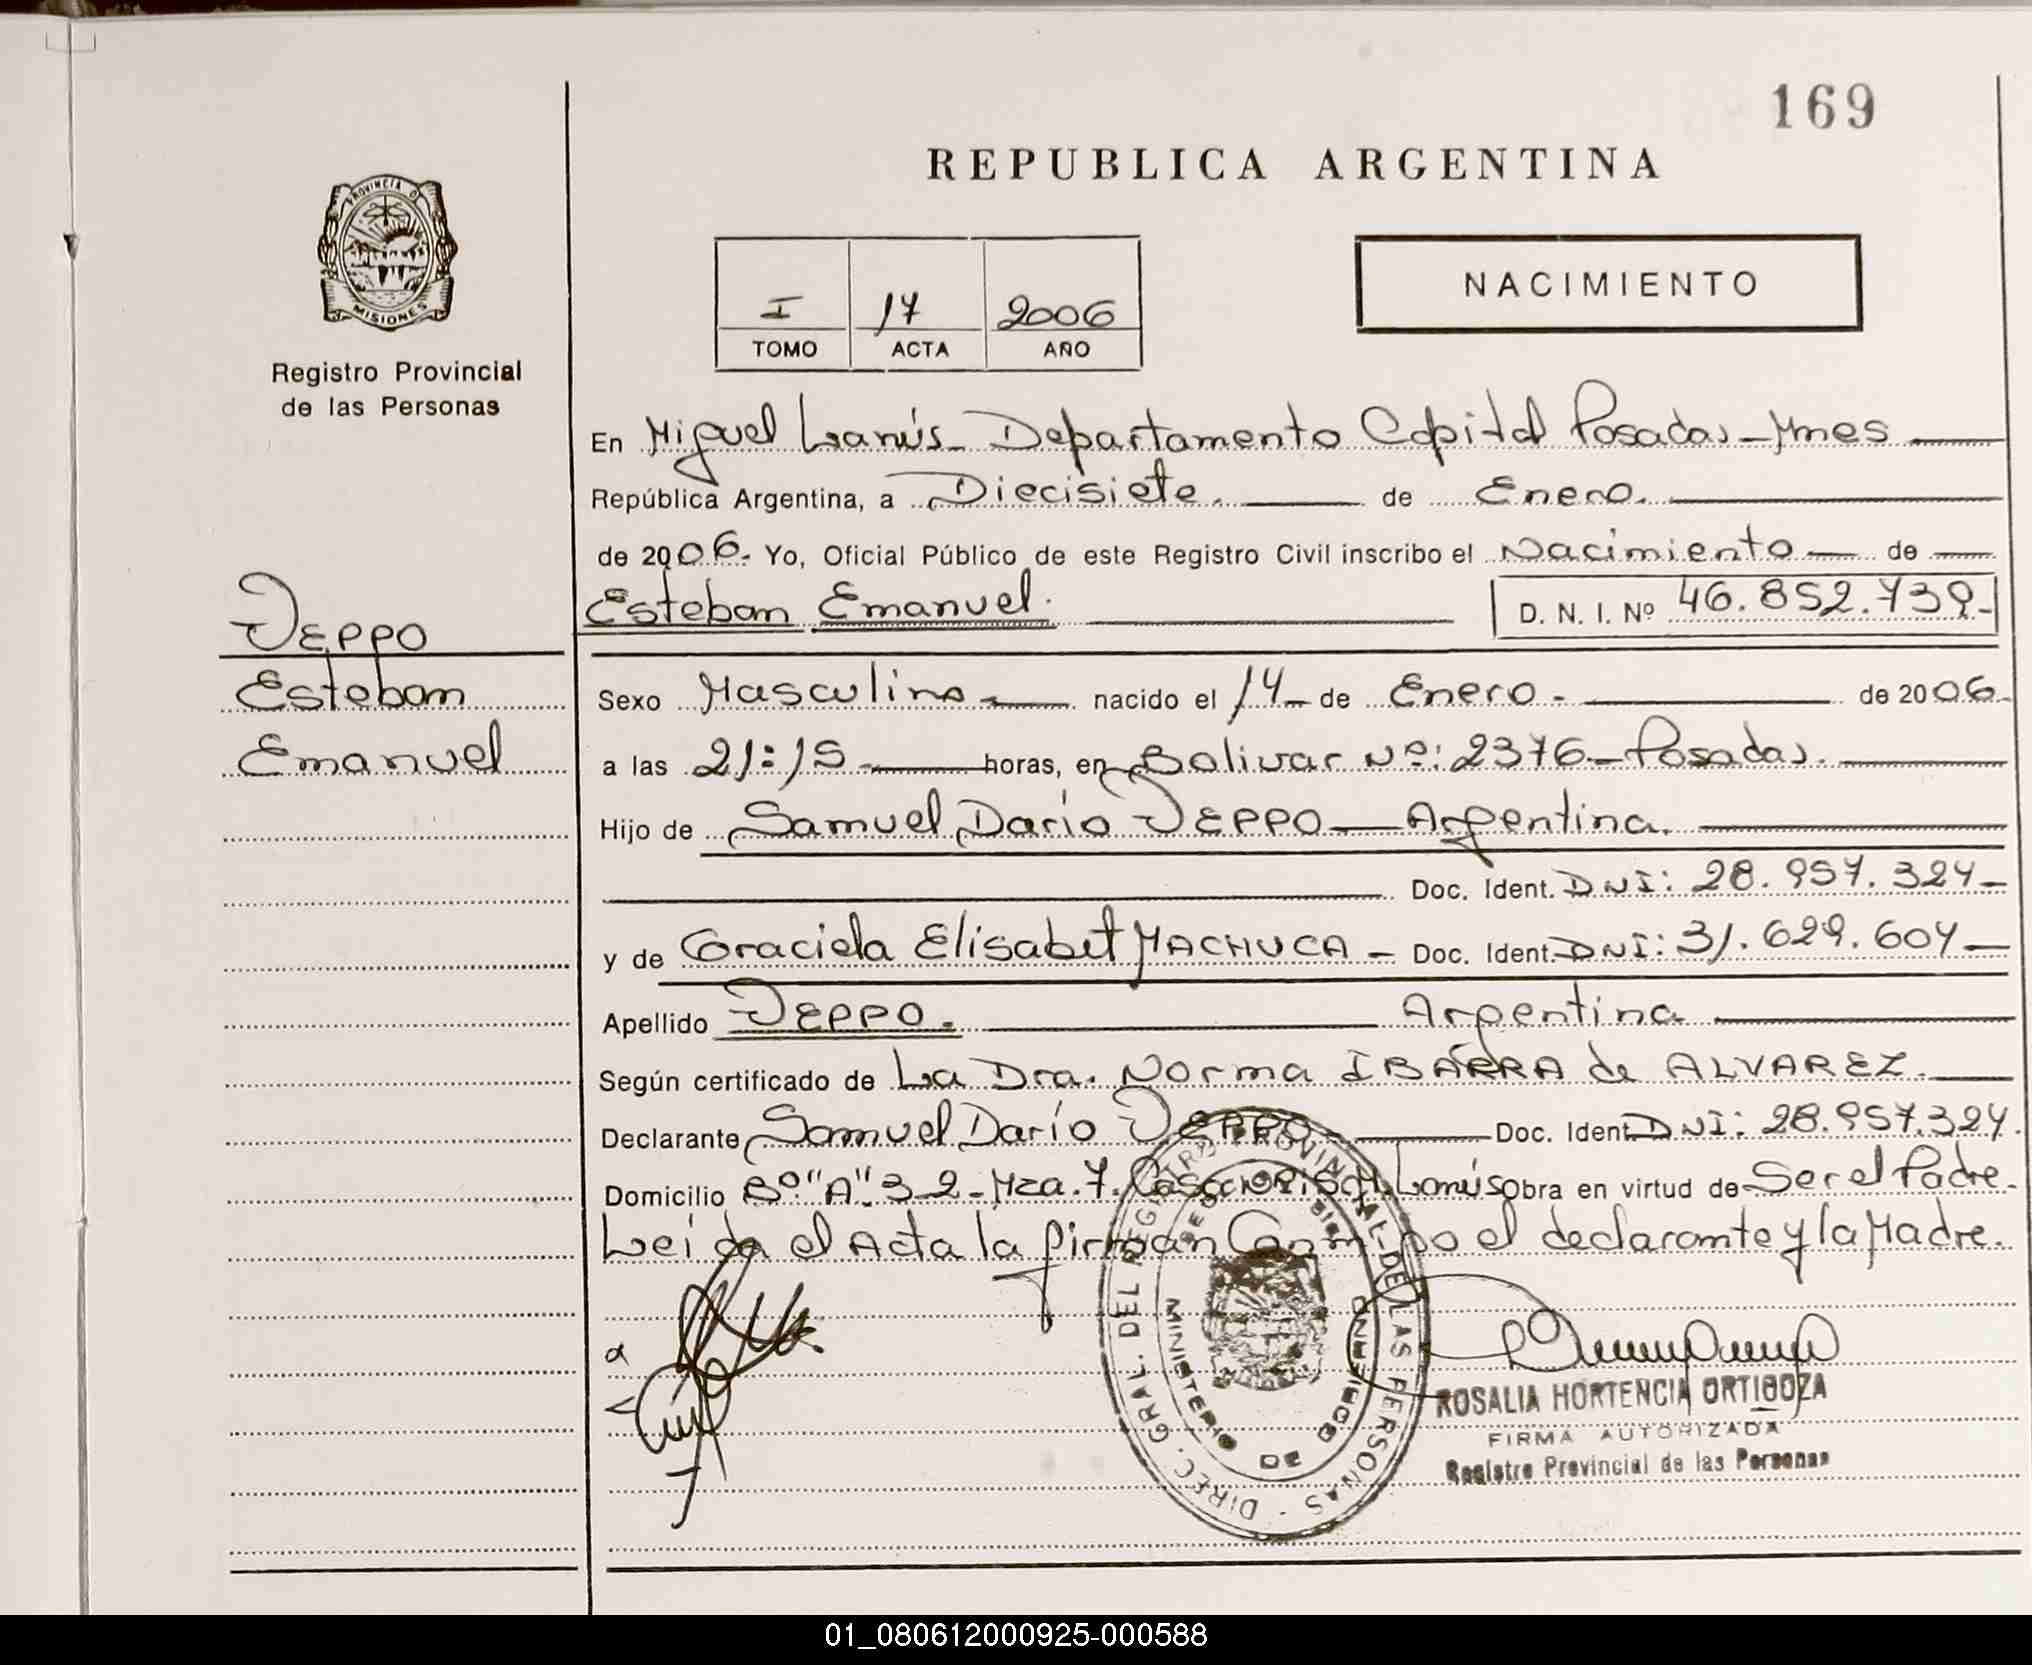 169
REPUBLICA ARGENTINA
PROVINCIA D
MISIONES
Registro Provincial
de las Personas
NACIMIENTO
I 17 2006
TOMO ACTA AÑO
En Miguel Lanús - Departamento Capital Posadas - Mnes
República Argentina, a Diecisiete. de Enero.
de 2006. Yo, Oficial Público de este Registro Civil inscribo el Nacimiento de
Esteban Emanuel. D. N. I. Nº 46.852.739.-
JEPPO
Esteban
Emanuel
Sexo Masculino - nacido el 14 - de Enero. - de 2006.
a las 21:15 - horas, en Bolivar Nº: 2376 - Posadas.
Hijo de Samuel Darío JEPPO - Argentina.
Doc. Ident. DNI: 28.957.324 -
y de Graciela Elisabet MACHUCA - Doc. Ident. DNI: 31.629.604 -
Apellido JEPPO. Argentina
Según certificado de La Dra. Norma IBARRA de ALVAREZ.
Declarante Samuel Darío JEPPO - Doc. Ident DNI: 28.957.324.
Domicilio Bº "A" 32 - Mza. 7. Lanús obra en virtud de Ser el Padre.
Leída el Acta la firman Conmigo el declarante y la Madre.
DIREC. GRAL. DEL REGISTRO PROVINCIAL DE LAS PERSONAS
MINISTERIO DE GOBIERNO
ROSALIA HORTENCIA ORTIGOZA
FIRMA AUTORIZADA
Registro Provincial de las Personas
01_080612000925-000588